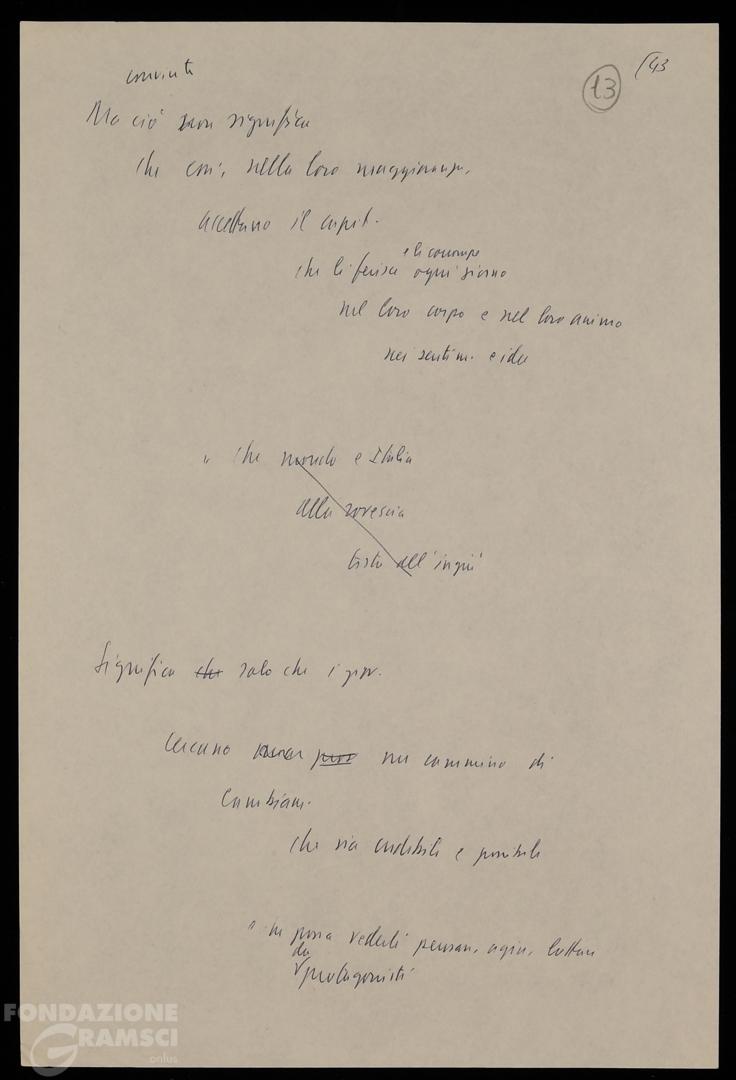 convinti
13
Ma ciò non significa
che essi, nella loro maggioranza,
accettano il capit.
e li corrompe
che li ferisce ogni giorno
nel loro corpo e nel loro animo
nei sentim. e idee
" che mondo e Italia
alla rovescia
testa all'ingiù
Significa che solo che i giov.
cercano un cammino di
cambiam.
che sia credibile e possibile
" che possa vederli pensare, agire, lottare
da
protagonisti
FONDAZIONE
GRAMSCI
onlus